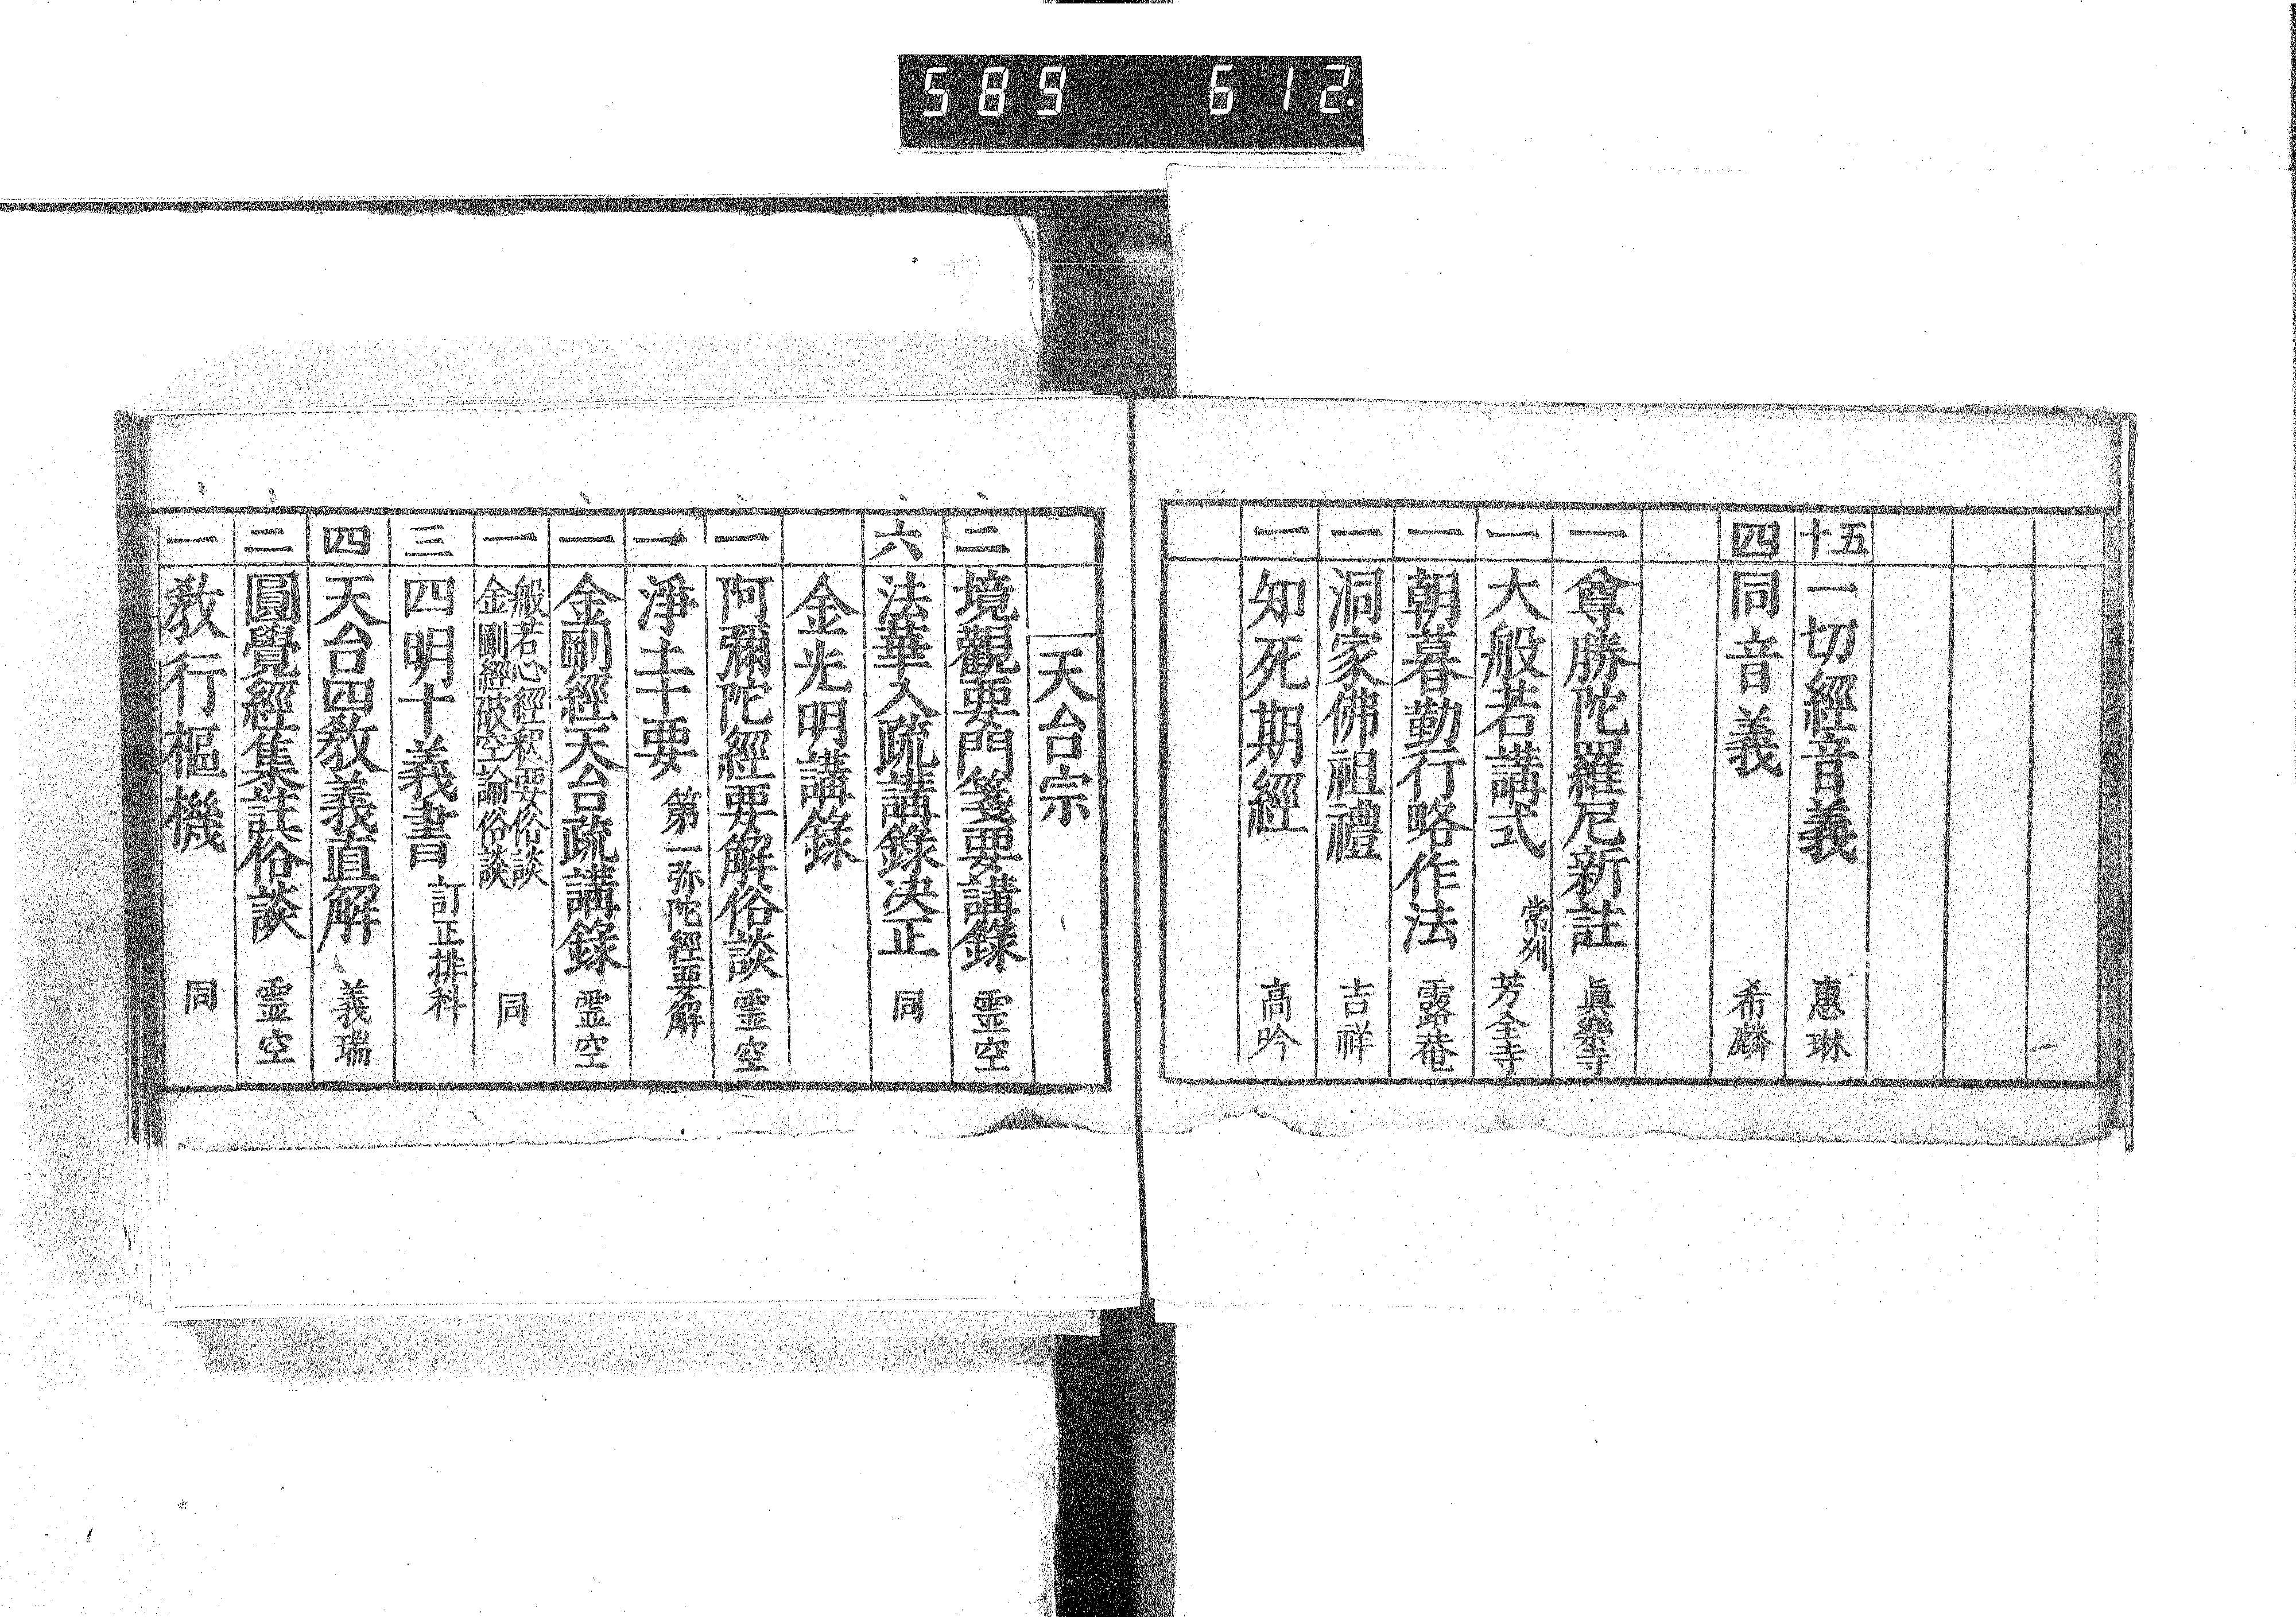 589 612.
十五 一切經音義 惠琳
四 同音義 希麟
一 尊勝陀羅尼新註 眞樂寺
一 大般若講式 常州 芳全寺
一 朝暮勤行略作法 露菴
一 洞家佛祖禮 吉祥
一 知死期經 高吟
天台宗
二 境觀要門箋要講錄 霊空
六 法華入疏講錄决正 同
金光明講錄
一 阿彌陀經要解俗談 霊空
一 淨土十要 第一弥陀經要解
一 金剛經天台疏講錄 霊空
一 般若心經釈要俗談
金剛經破空論俗談 同
三 四明十義書 訂正排科
四 天台四教義直解 義瑞
二 圓覺經集註俗談 霊空
一 教行樞機 同